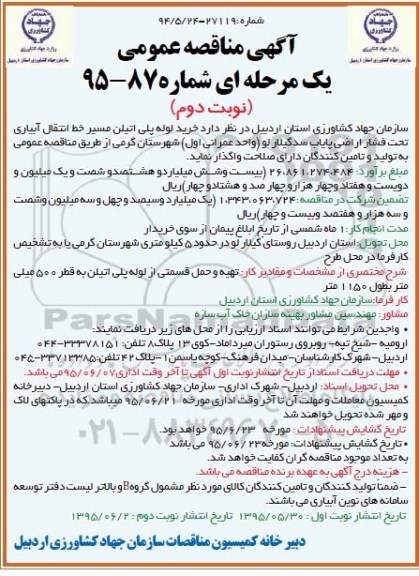 شماره:۲۷۱۱۹-۹۴/۵/۲۴
جهاد
کشاورزی
وزارت جهاد کشاورزی
سازمان جهاد کشاورزی استان اردبیل
جهاد
کشاورزی
وزارت جهاد کشاورزی
سازمان جهاد کشاورزی استان اردبیل
آگهی مناقصه عمومی
یک مرحله ای شماره ۸۷-۹۵
(نوبت دوم)
سازمان جهاد کشاورزی استان اردبیل در نظر دارد خرید لوله پلی اتیلن مسیر خط انتقال آبیاری
تحت فشار اراضی پایاب سدگیلار لو (واحد عمرانی اول) شهرستان گرمی از طریق مناقصه عمومی
به تولید و تامین کنندگان دارای صلاحیت واگذار نماید.
مبلغ برآورد: ۲۶،۸۶۱،۲۷۴،۴۸۴ (بیست وشش میلیاردو هشتصدو شصت و یک میلیون و
دویست و هفتاد وچهار هزارو چهار صد و هشتادو چهار)ریال
تضمین شرکت در مناقصه :۱،۳۴۳،۰۶۳،۷۲۴ (یک میلیارد وسیصد و چهل وسه میلیون وشصت
و سه هزار و هفتصد وبیست و چهار)ریال
مدت انجام کار: ۱ ماه شمسی از تاریخ ابلاغ پیمان از سوی خریدار
محل تحویل:استان اردبیل روستای گیلار لو در حدود ۵ کیلو متری شهرستان گرمی یا به تشخیص
کارفرما در محل طرح
شرح مختصری از مشخصات و مقادیر کار: تهیه و حمل قسمتی از لوله پلی اتیلن به قطر ۵۰۰ میلی
متر بطول ۱۱۵۰ متر
کار فرما:سازمان جهاد کشاورزی استان اردبیل
مشاور: مهندسین مشاور بهینه سازان خاک آب سازه
• واجدین شرایط می توانند اسناد ارزیابی را از محل های زیر دریافت نمایند:
ارومیه -شیخ تپه- روبروی رستوران میرداماد-کوی ۱۳ پلاک۸ تلفن: ۳۳۳۷۸۱۵۱-۰۴۴
اردبیل- شهرک کارشناسان-میدان فرهنگ-کوچه یاسمن۱-پلاک۴۲ تلفن: ۳۳۷۱۳۳۸۵-۰۴۵
• مهلت دریافت اسناد از تاریخ انتشار نوبت اول آگهی تا آخر وقت اداری۹۵/۰۶/۰۷می باشد.
• محل تحویل اسناد: اردبیل- شهرک اداری- سازمان جهاد کشاورزی استان اردبیل- دبیرخانه
کمیسیون معاملات و مهلت آن تا آخر وقت اداری مورخه ۹۵/۰۶/۲۱ میباشد که در پاکتهای لاک
و مهر شده تحویل خواهند شد
تاریخ گشایش پیشنهادات : مورخه ۹۵/۶/۲۳ خواهد بود.
• تاریخ گشایش پیشنهادات: مورخه۹۵/۰۶/۲۳ می باشد
به تعداد موجود مناقصه گران کفایت خواهد شد.
- هزینه درج آگهی به عهده برنده مناقصه می باشد.
- ضمنا تولید کنندگان و تامین کنندگان کالای مورد نظر مشمول گروه B و بالاتر لیست دفتر توسعه
سامانه های نوین آبیاری می باشند.
تاریخ انتشار نوبت اول : ۱۳۹۵/۰۵/۳۰ تاریخ انتشار نوبت دوم : ۱۳۹۵/۰۶/۲
دبیر خانه کمیسیون مناقصات سازمان جهاد کشاورزی اردبیل